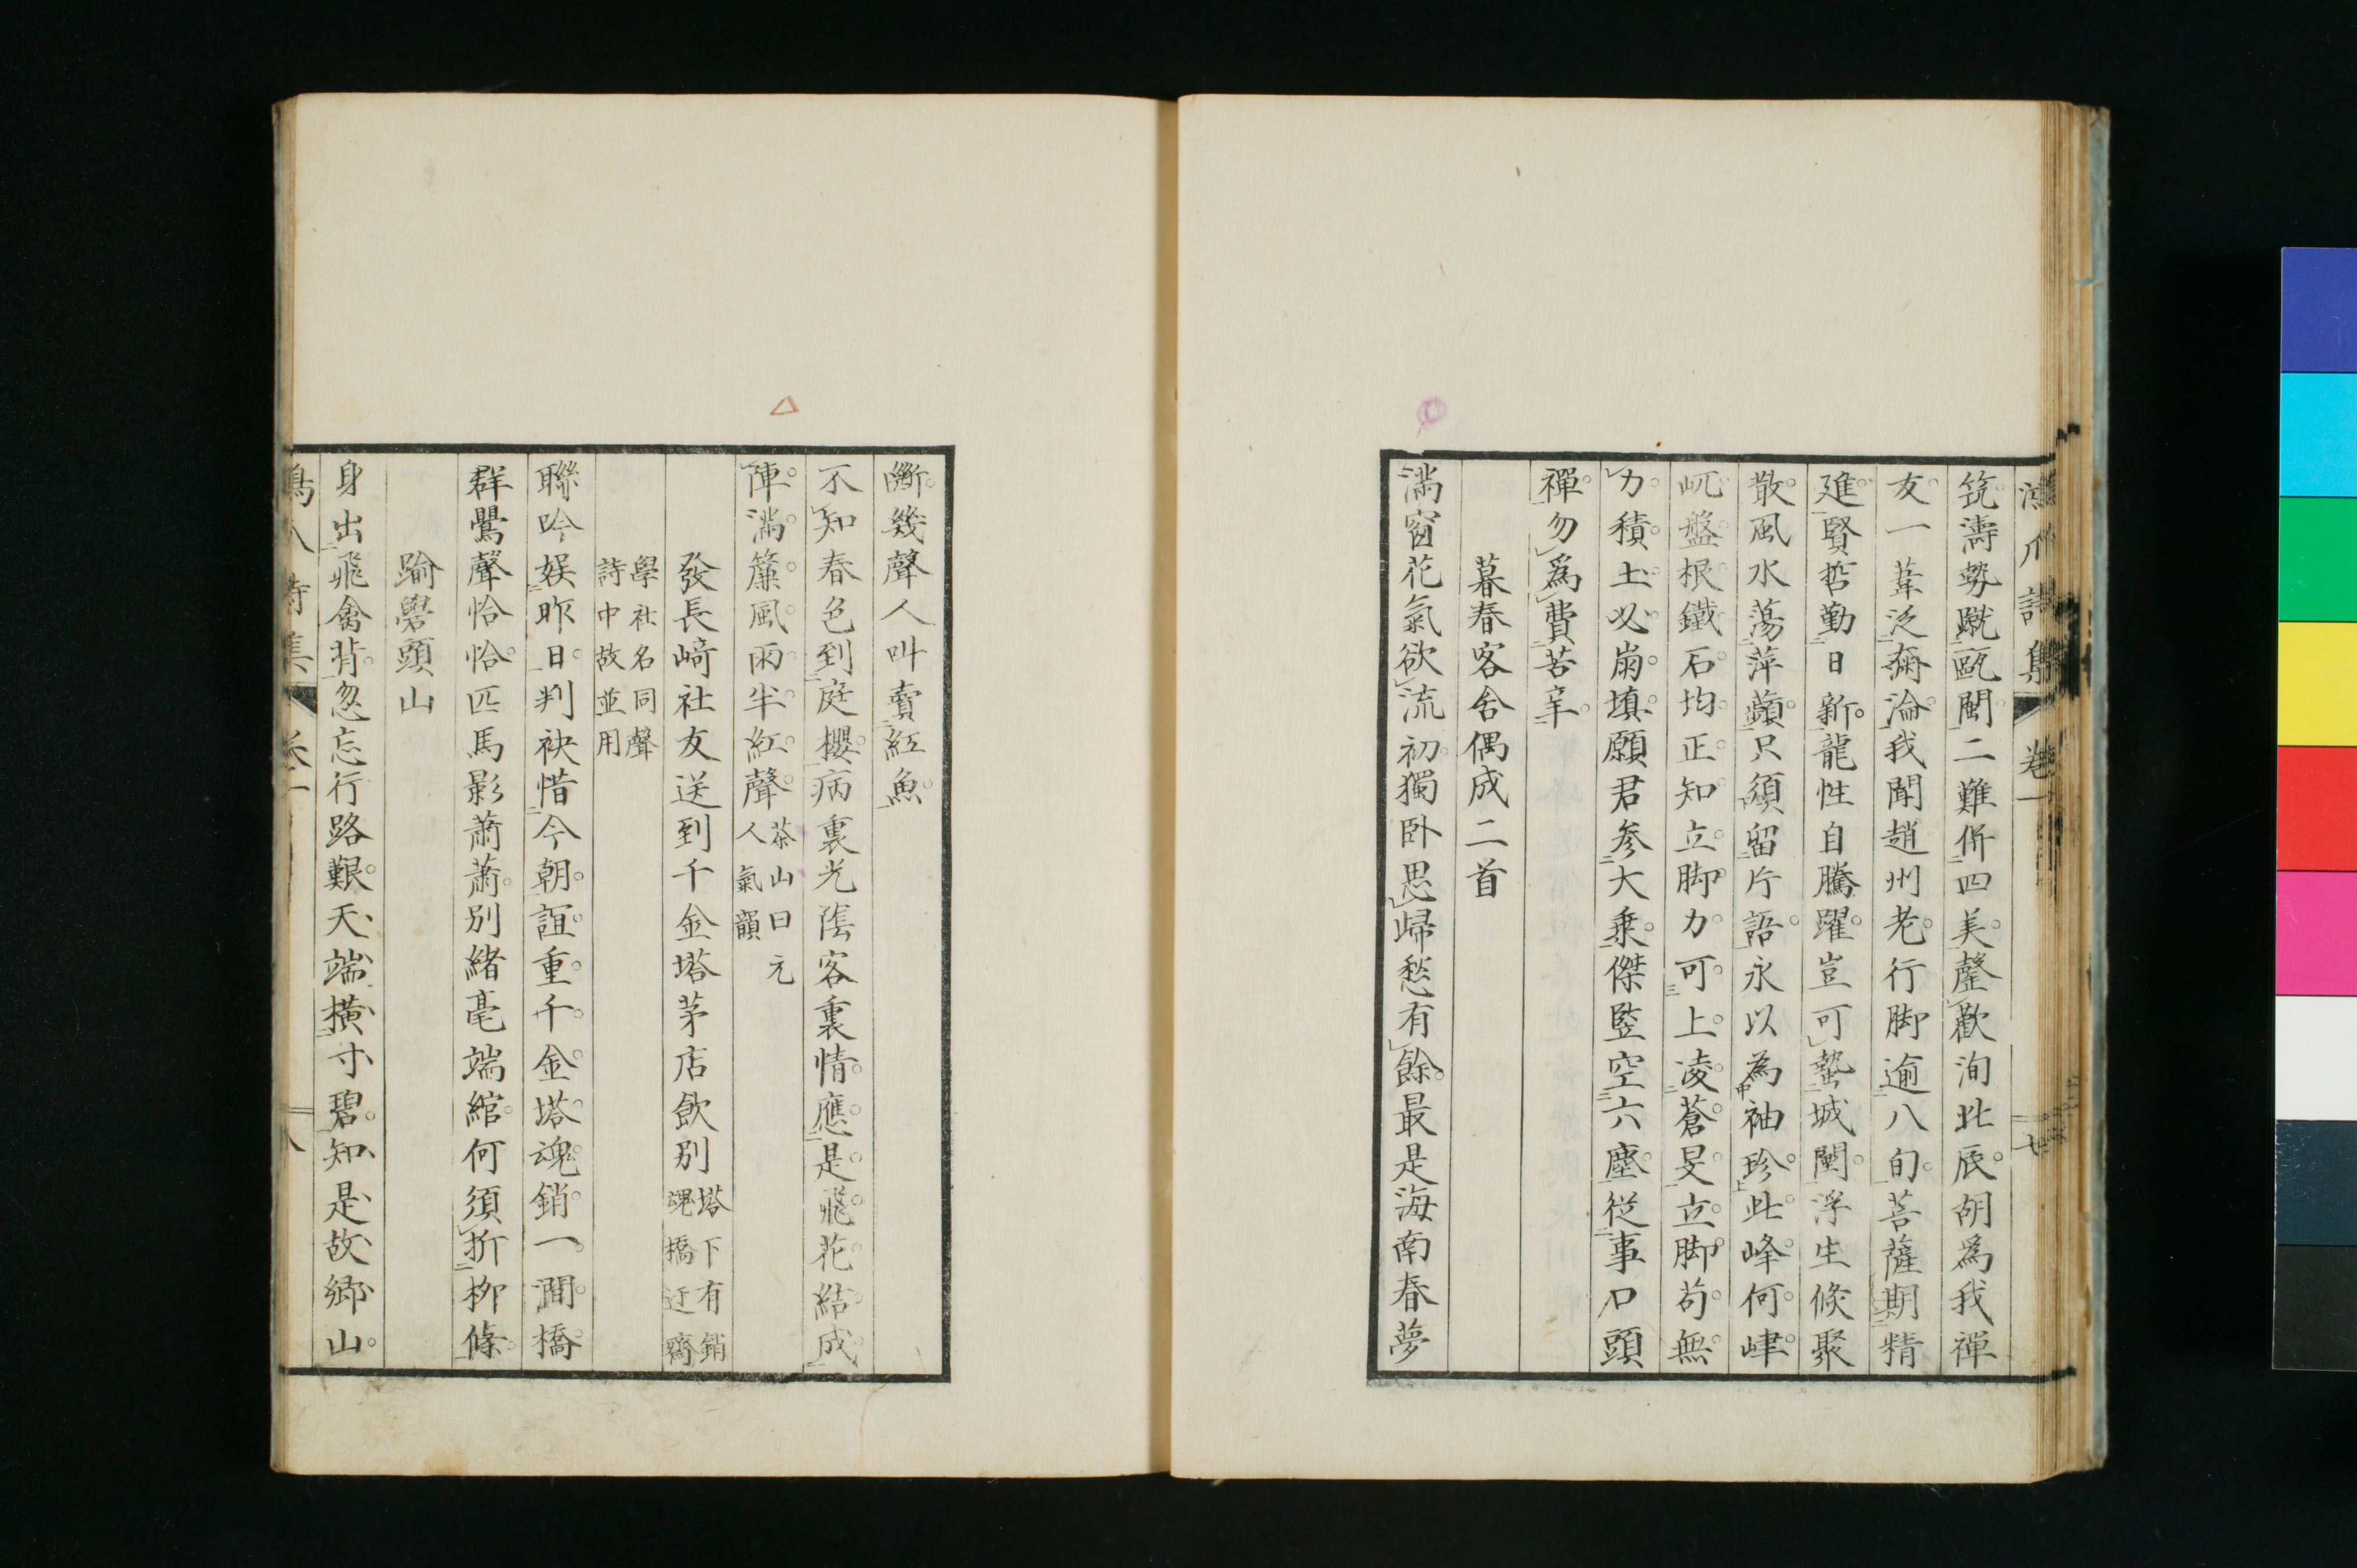 筑濤勢蹴甌閩二難併四美罄歡洵北辰胡爲我禪
友一葦泛奫淪我聞趙州老行脚逾八旬菩薩期精
進賢哲勤日新龍性自騰躍豈可蟄城闉浮生倏聚
散風水蕩萍蘋只須留片語永以為袖珍此峰何嵂
屼盤根鐵石均正知立脚力可上凌蒼旻立脚苟無
力積土必崩填願君参大乗傑豎空六塵從事口頭
禪勿爲費苦辛
暮春客舍偶成二首
滿窗花氣欲流初獨卧思歸愁有餘最是海南春夢
斷幾聲人叫賣紅魚
不知春色到庭櫻病裏光陰客裏情應是飛花結成
陣滿簾風雨半紅聲茶山曰元
人氣韻
發長﨑社友送到千金塔茅店飲別塔下有銷
魂橋迂齋
學社名同聲
詩中故並用
聯吟娱昨日判袂惜今朝誼重千金塔魂銷一澗橋
群鶯聲恰恰匹馬影蕭蕭別緒毫端綰何須折柳條
踰礐頭山
身出飛禽背忽忘行路艱天端橫寸碧知是故鄉山